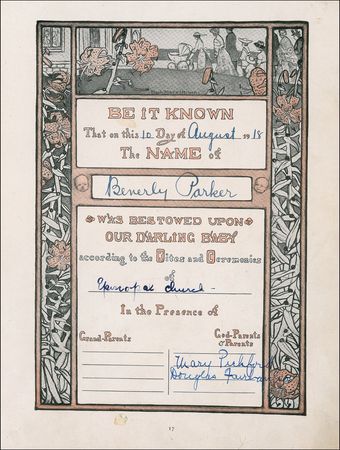 BE IT KNOWN
That on this 10 Day of August 1918
The NAME of
Beverly Parker
WAS BESTOWED UPON
OUR DARLING BABY
according to the Rites and Ceremonies
of
Episcopal Church -
In the Presence of
Grand-Parents
God-Parents
& Parents
Mary Pickford
Douglas Fairbanks
17